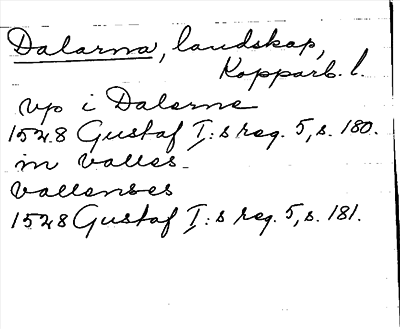 Dalarna, landskap,
Kopparb. l.
vp i Dalerne
1528 Gustaf I:s reg. 5, s. 180.
in valles
vallenses
1528 Gustaf I:s reg. 5, s. 181.